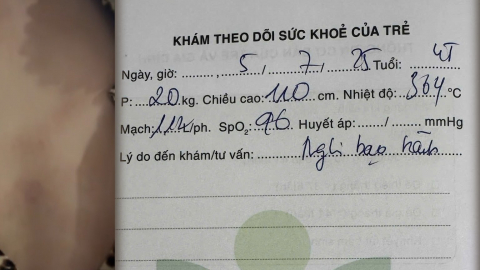 KHÁM THEO DÕI SỨC KHOẺ CỦA TRẺ
Ngày, giờ: ........, 5 / 7 / 25 Tuổi: 4T
P: 20 kg. Chiều cao: 110 cm. Nhiệt độ: 364 °C
Mạch: 112 /ph. SpO2: 96 Huyết áp: ....../....... mmHg
Lý do đến khám/tư vấn: Nghi bạo hành